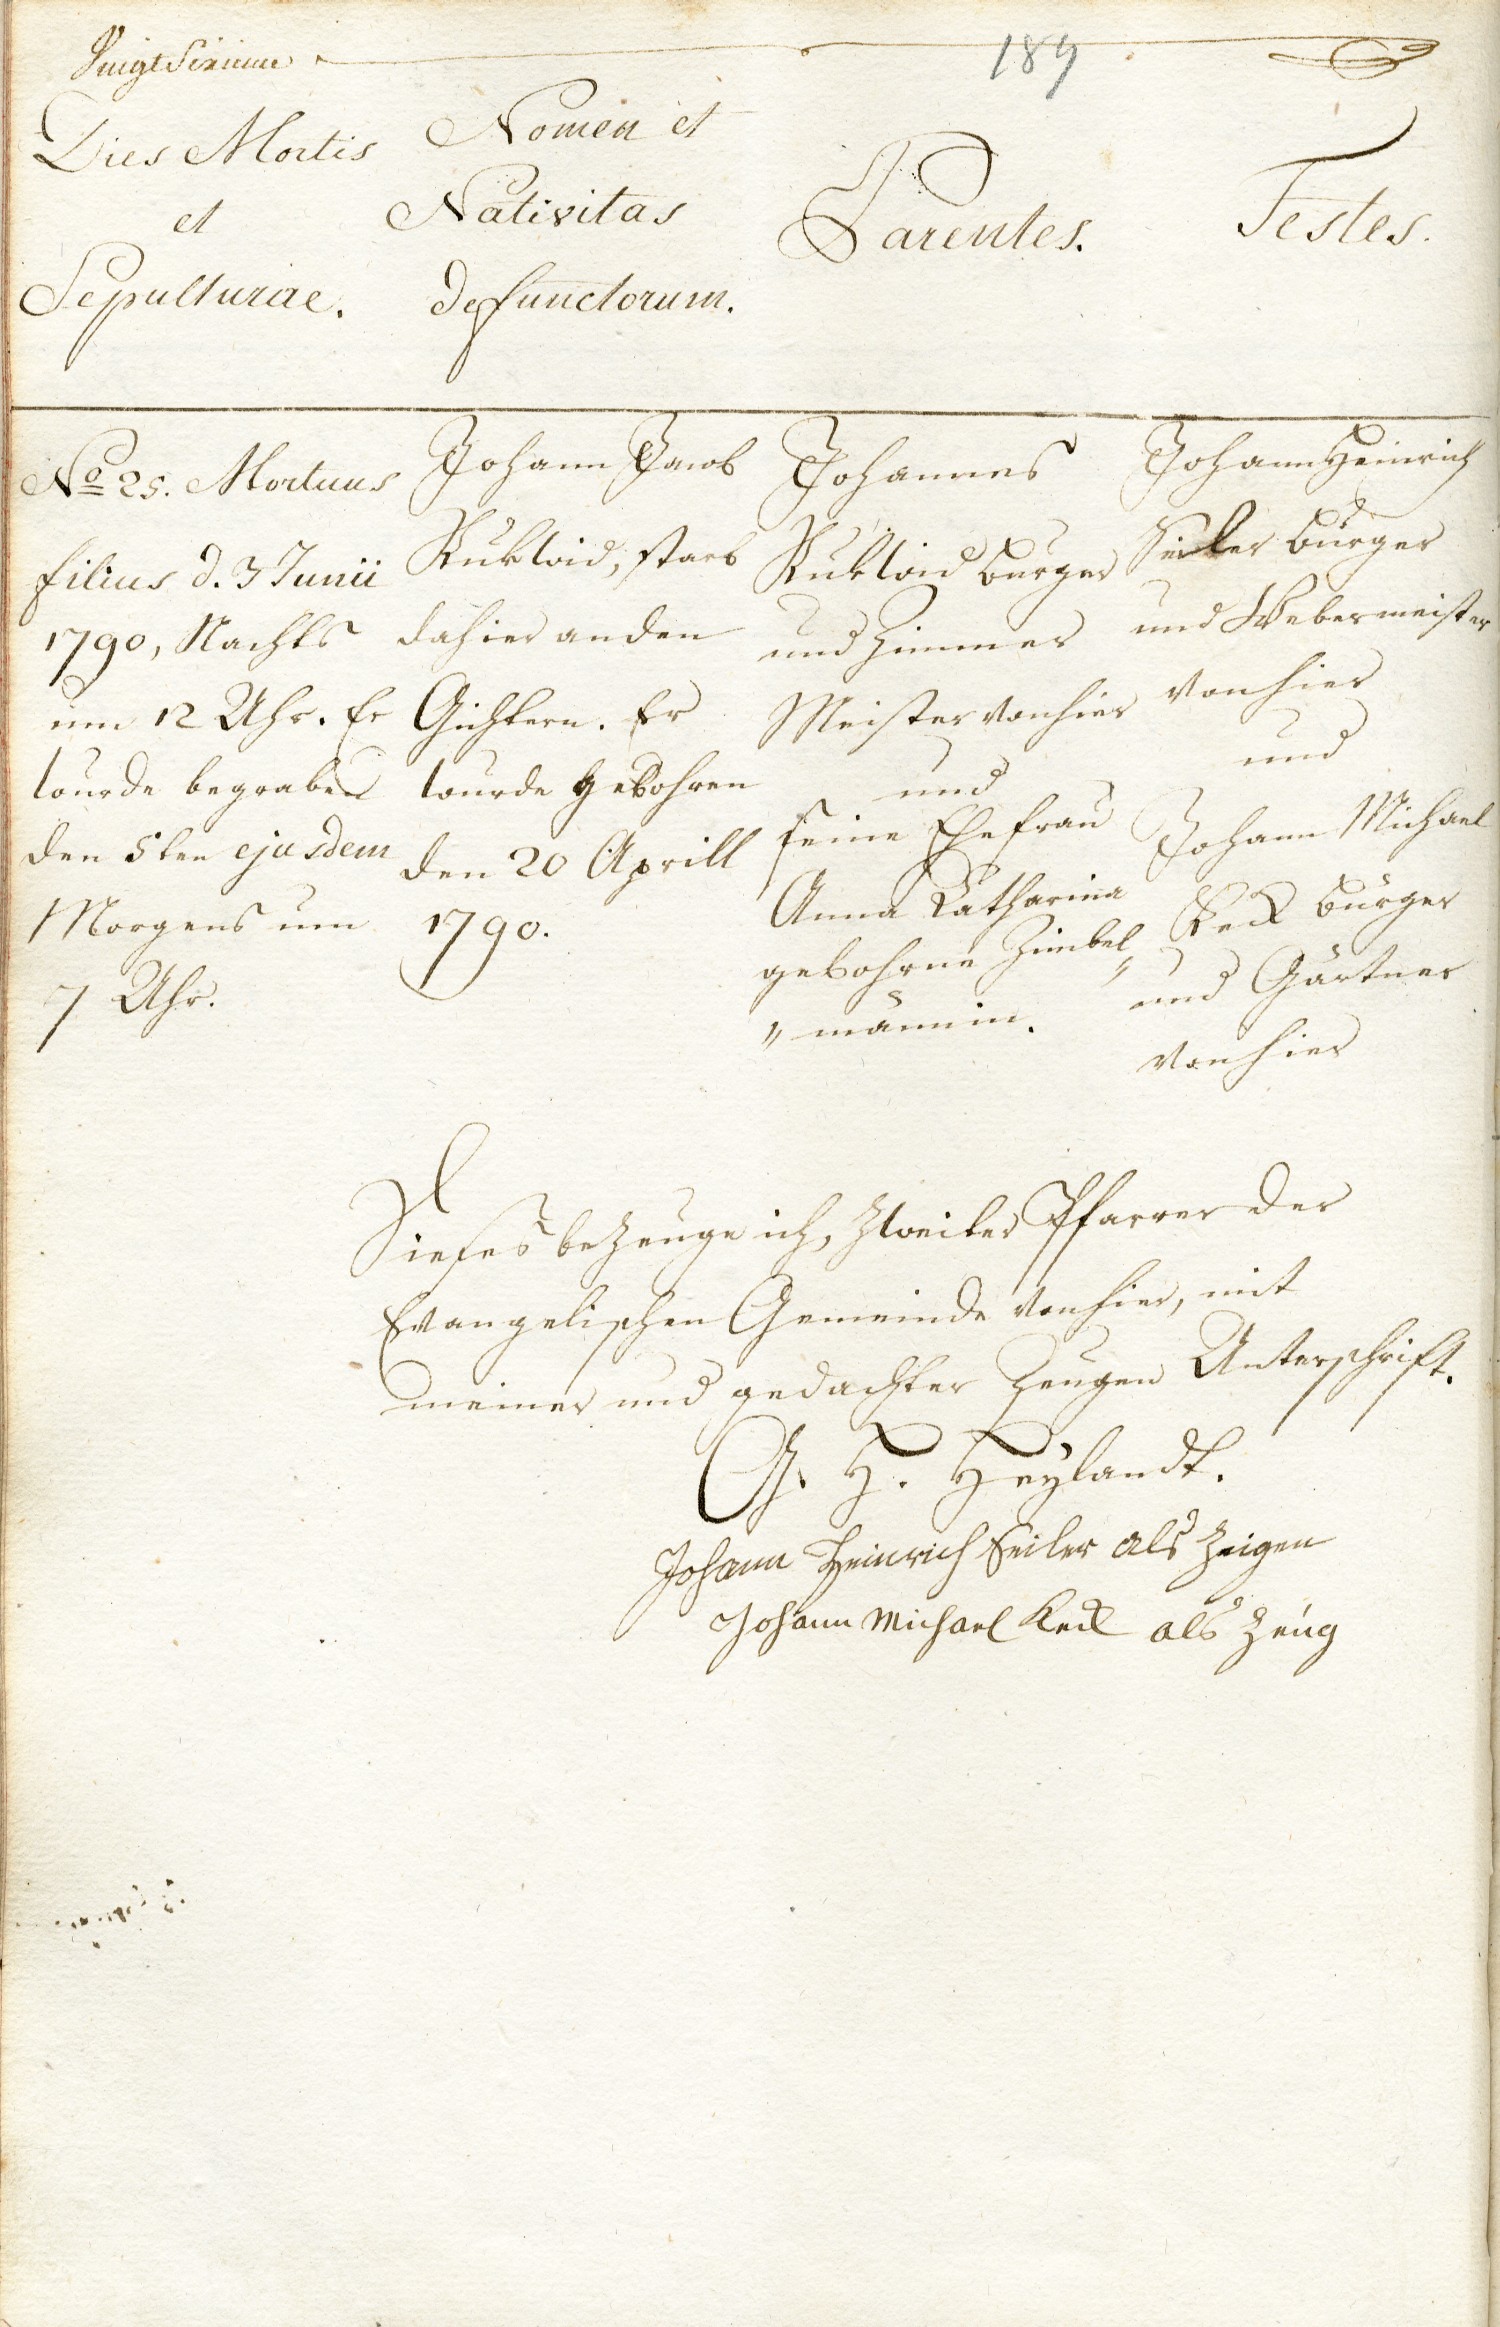 189
Dies Mortis
et
Sepulturae.
Nomen et
Nativitas
defunctorum.
Parentes.
Testes.
No 25. Mortuus
filius d. 3 Junii
1790, Nachts
um 12 Uhr. Er
wurde begraben
den 5ten ejusdem
Morgens um
7 Uhr.
Johann Jacob
starb
dahier an den
Gichtern. Er
wurde gebohren
den 20 Aprill
1790.
Johannes
Burger
und Zimmer
Meister von hier
und
seine Ehefrau
Anna Catharina
gebohrne Zimbel„
„männin.
Johann Heinrich
Seiler Burger
und Webermeister
von hier
und
Johann Michael
Keck Burger
und Gärtner
von hier
Dieses bezeuge ich, Zweiter Pfarrer der
Evangelischen Gemeinde von hier, mit
meiner und gedachter Zeugen Unterschrift.
G. H. Heylandt.
Johann Heinrich Seiler als Zeigen
Johann Michael Keck als Zeug